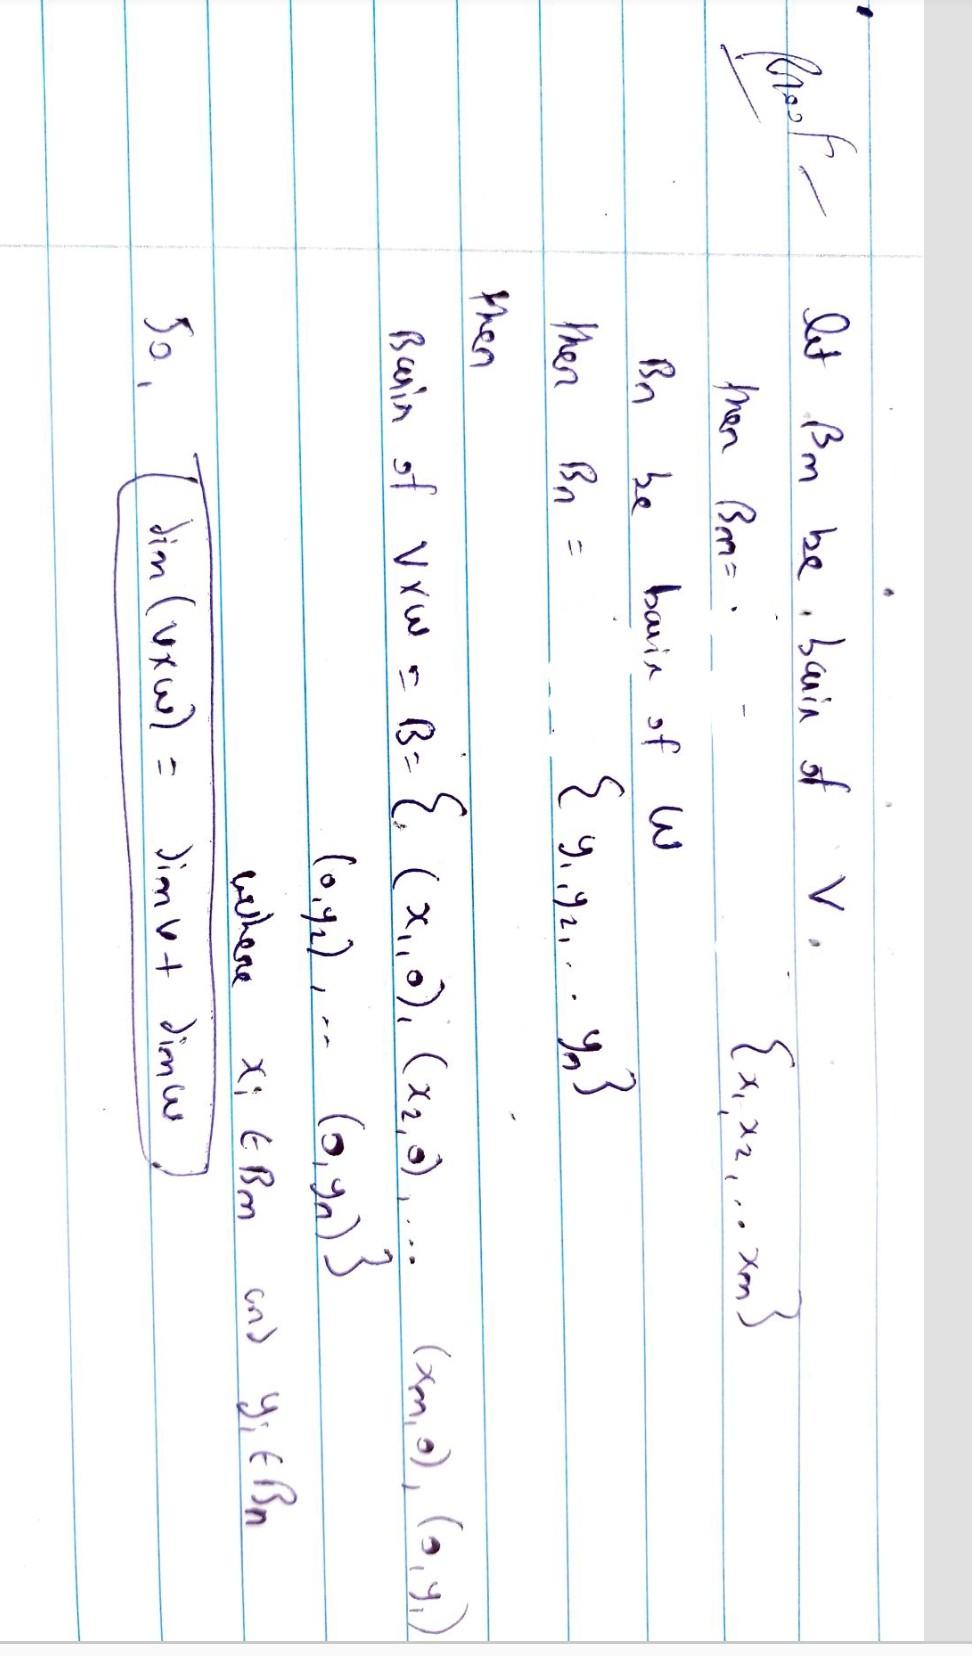 Proof -
let Bm be basis of V.
then Bm = {x1, x2, ... xm}
Bn be basis of W
then Bn = {y1, y2, ... yn}
then
Basis of V×W = B = {(x1,0), (x2,0), ... (xm,0), (0,y1)
(0,y2), ... (0,yn)}
where xi ∈ Bm and yi ∈ Bn
So, dim(V×W) = dim V + dim W